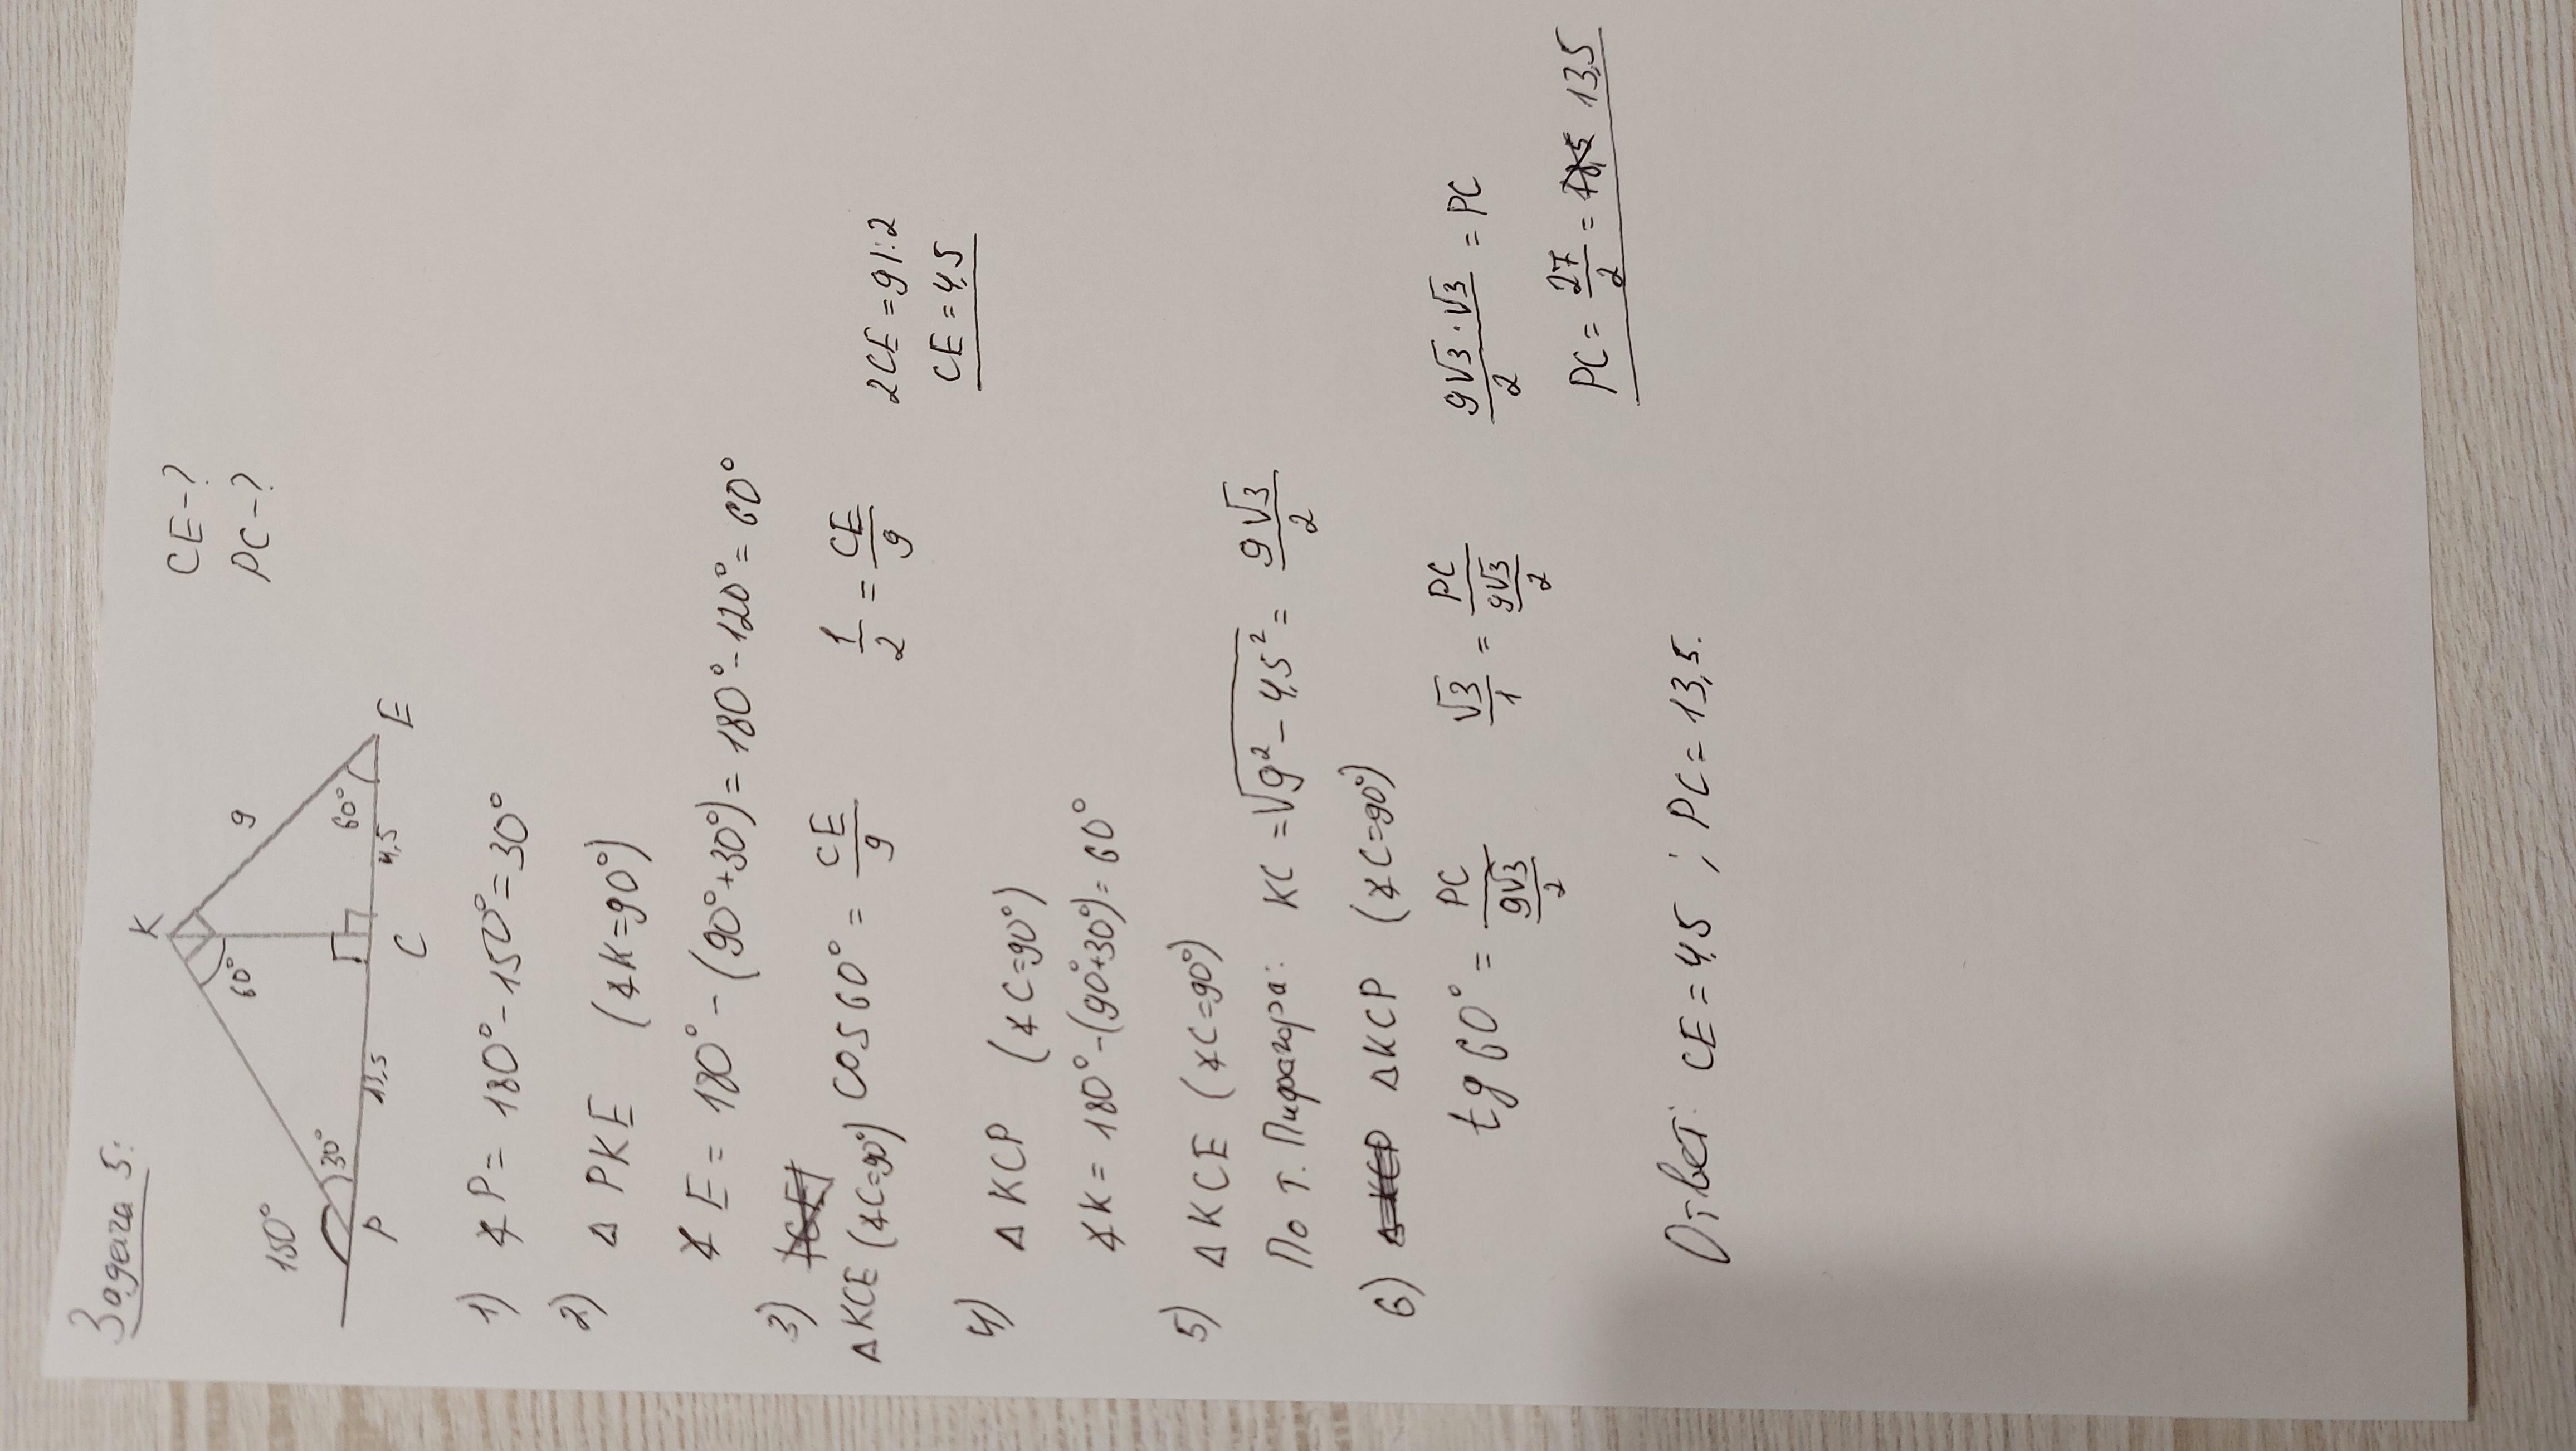 Задача 5:
CE-?
PC-?
K
9
150°
60°
60°
30°
13,5
4,5
P
C
E
1) ∡P = 180° - 150° = 30°
2) Δ PKE (∡K=90°)
∡E = 180° - (90°+30°) = 180° - 120° = 60°
3)
ΔKCE (∡C=90°) cos 60° = CE/9 1/2 = CE/9 2CE = 9 |:2
CE = 4,5
4) Δ KCP (∡C=90°)
∡K = 180° - (90°+30°) = 60°
5) Δ KCE (∡C=90°)
По т. Пифагора: KC = √(9² - 4,5²) = 9√3/2
6) ΔKCP (∡C=90°)
tg 60° = PC/(9√3/2) √3/1 = PC/(9√3/2) 9√3·√3/2 = PC
PC = 27/2 = 13,5
Ответ: CE = 4,5 ; PC = 13,5.